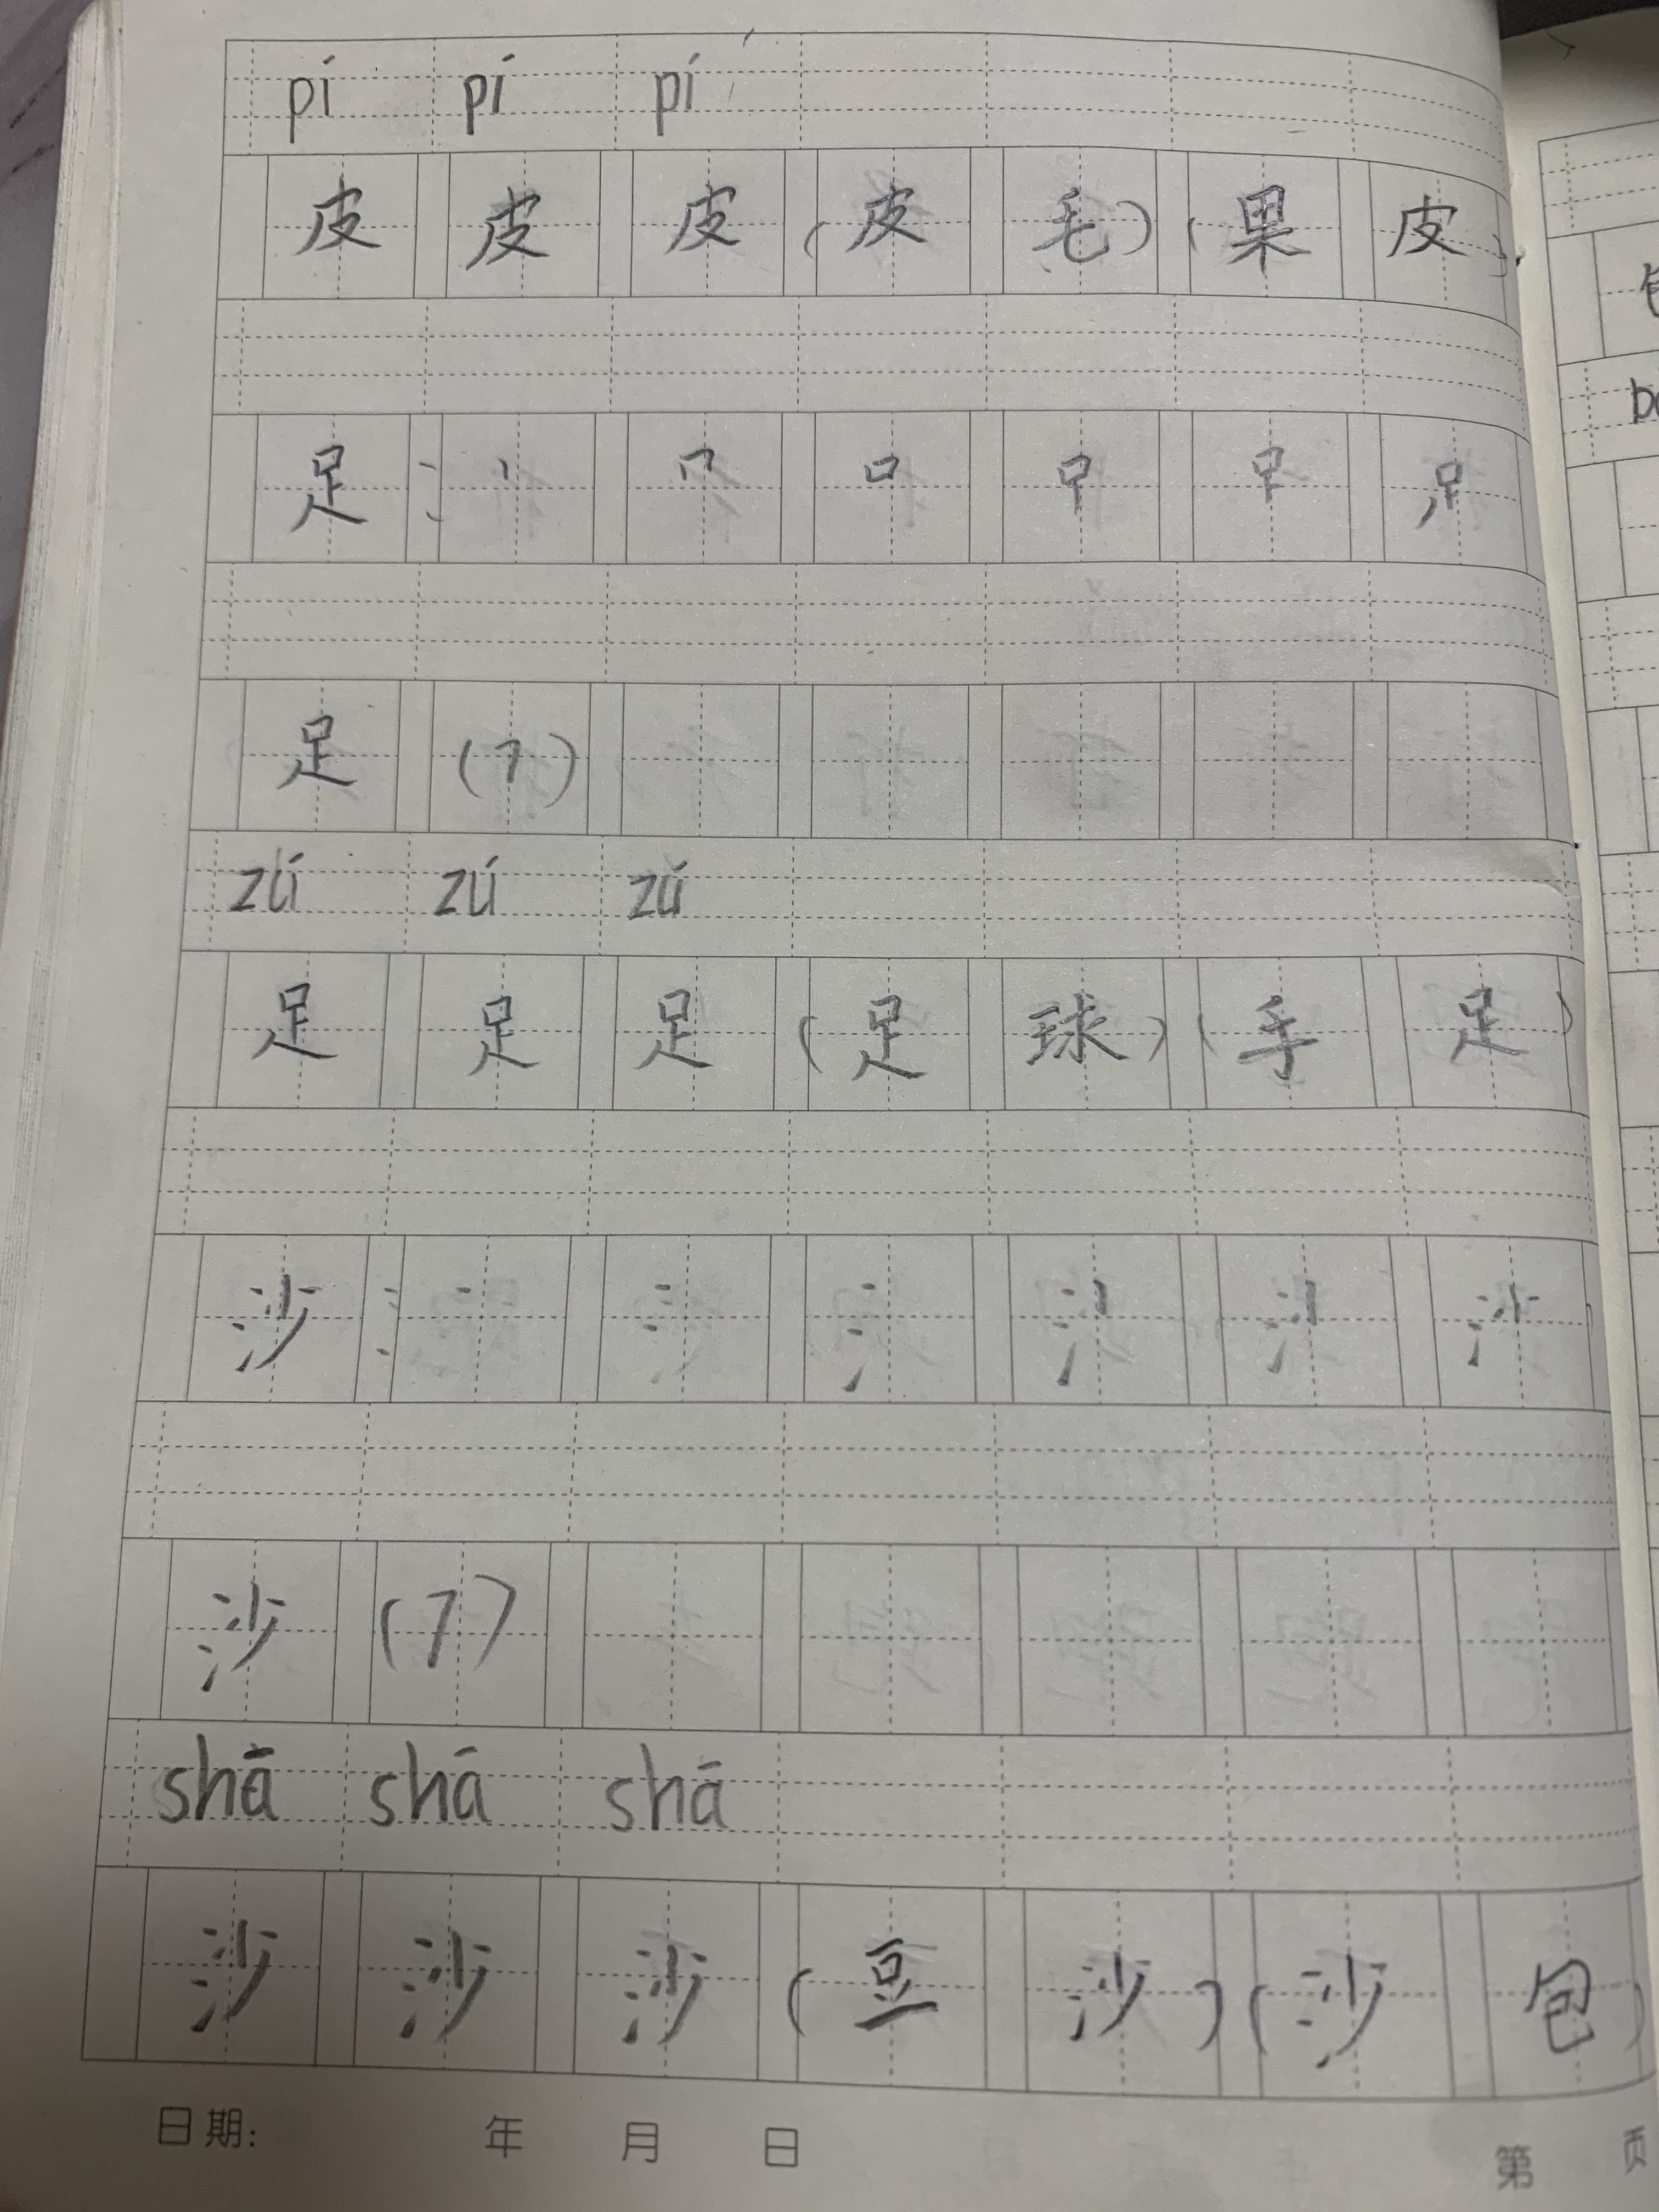 pí pí pí
皮 皮 皮 (皮 毛) (果 皮)
足 : 丨 口 口
足 (7)
zú zú zú
足 足 足 (足 球) (手 足)
沙 : 丶 冫 氵
沙 (7)
shā shā shā
沙 沙 沙 (豆 沙) (沙 包)
日期: 年 月 日
第 页